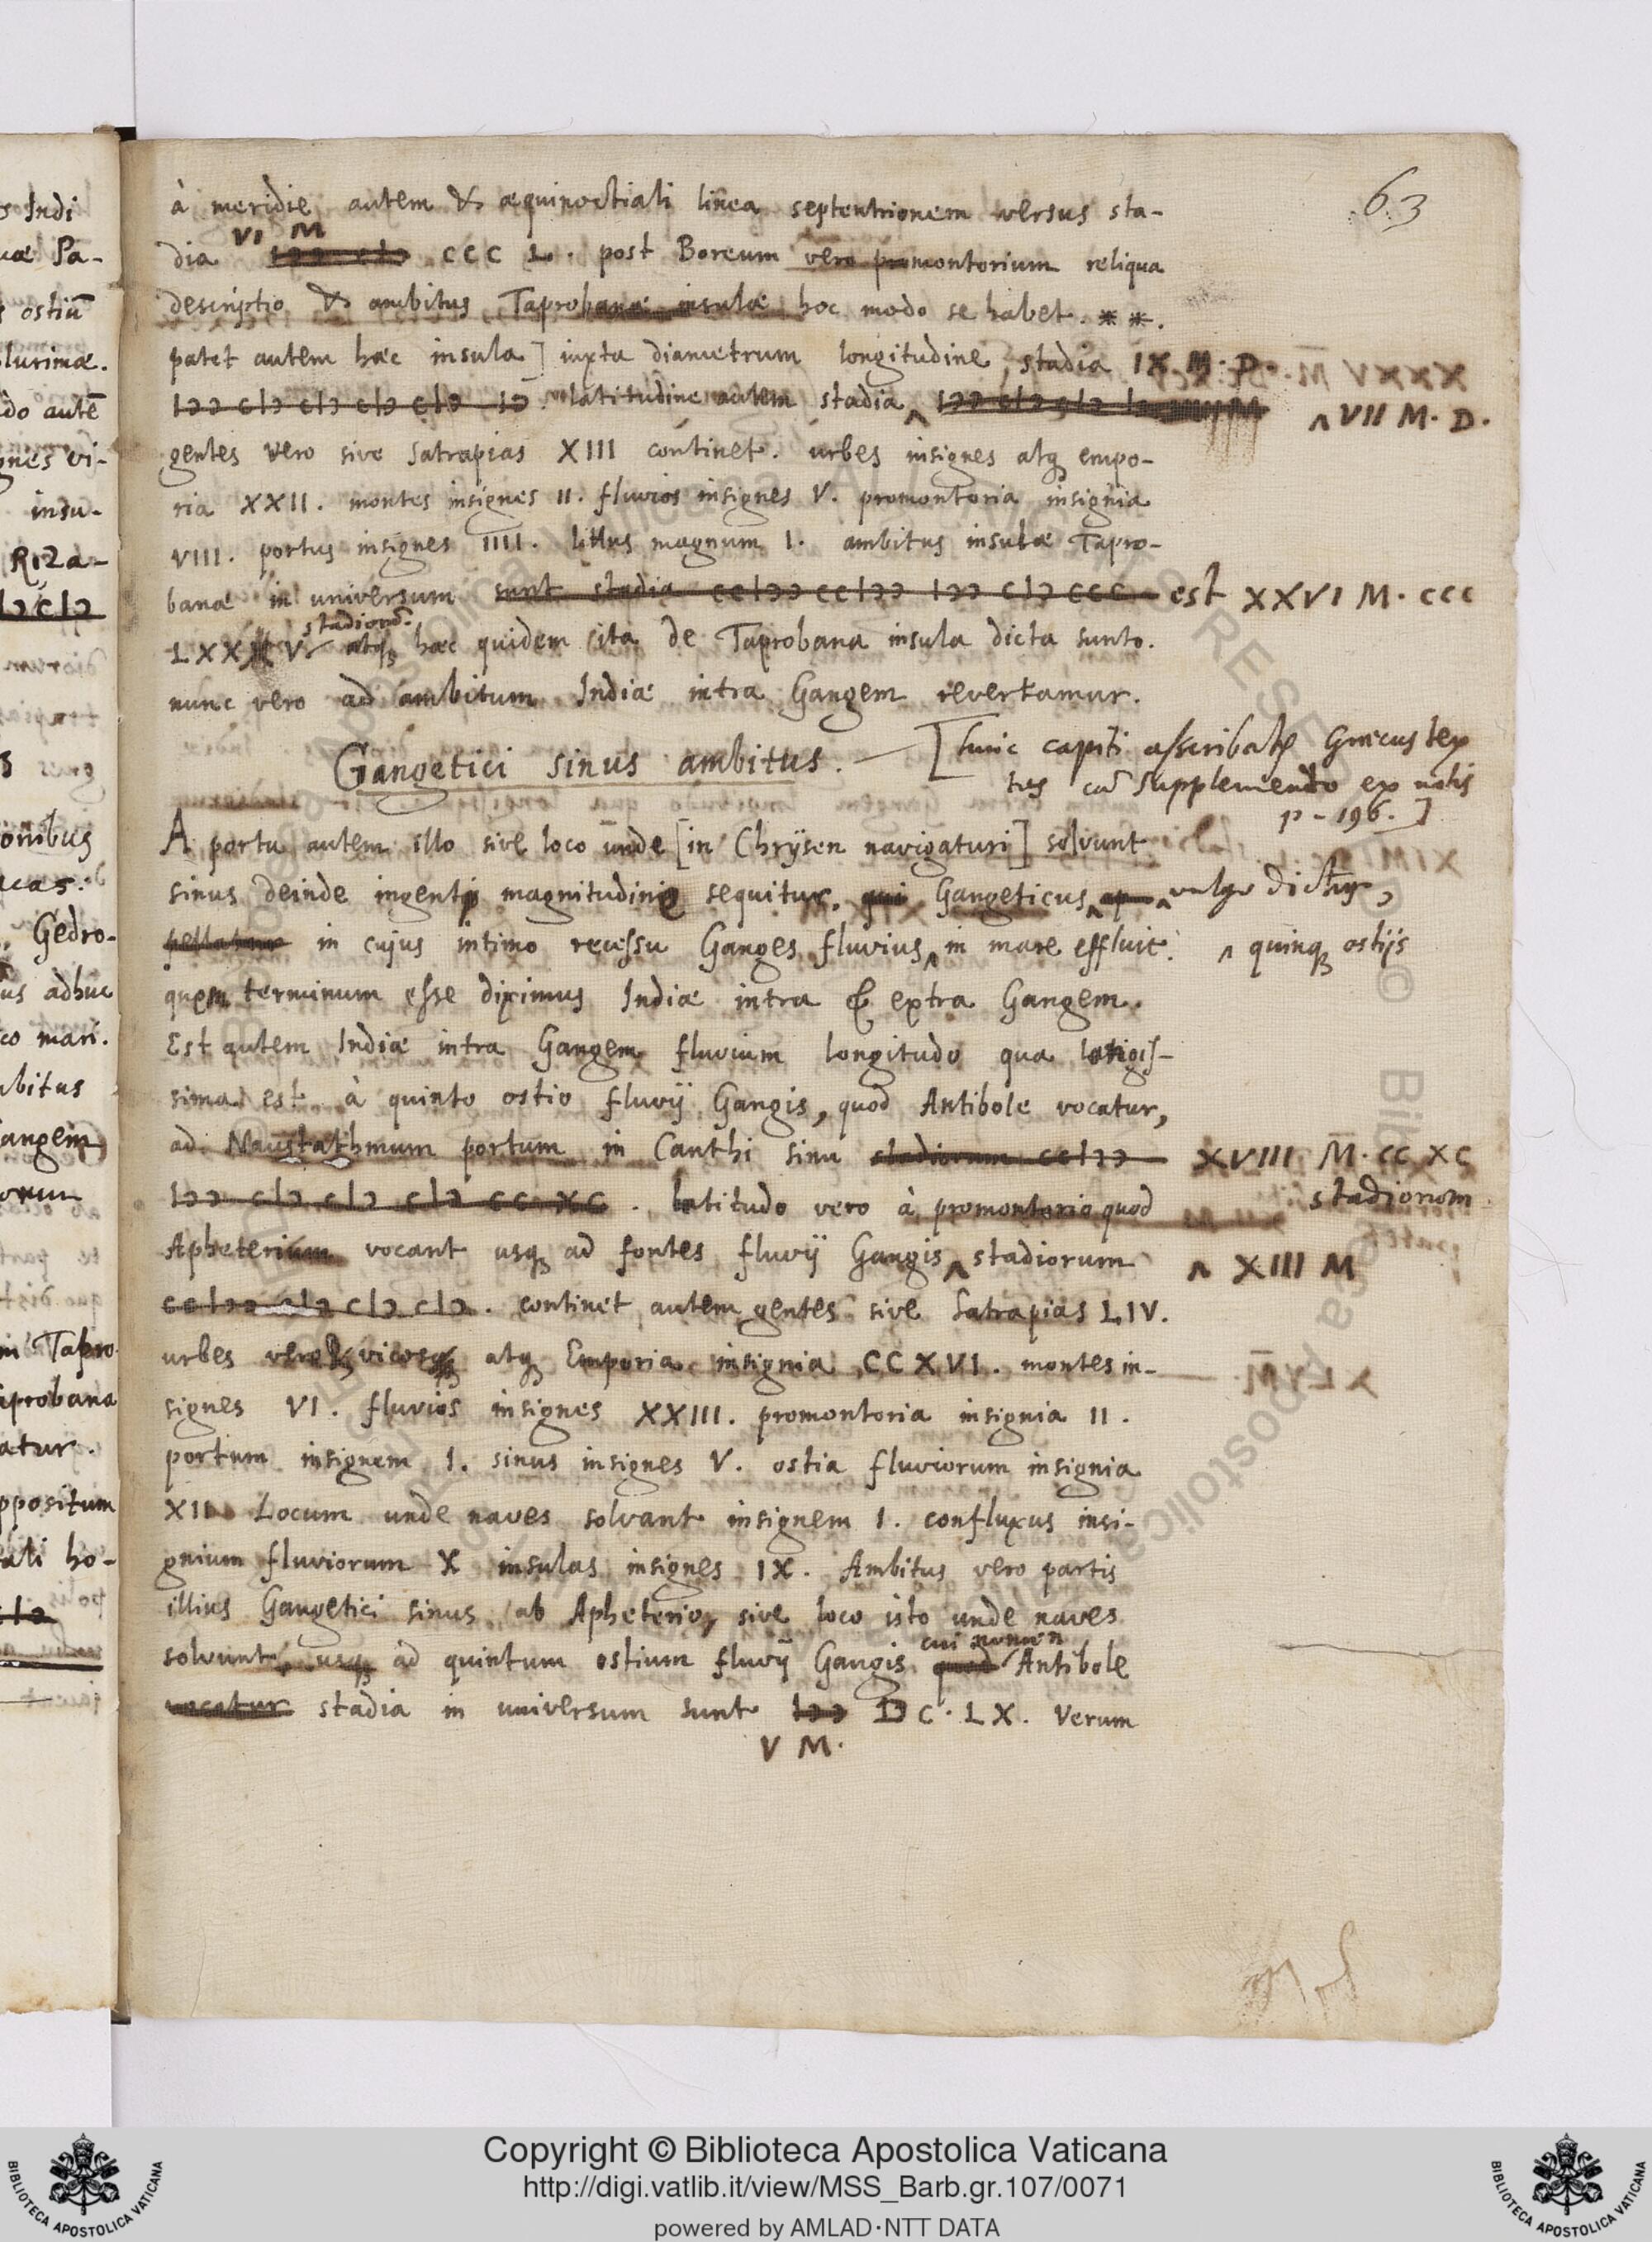 63
à meridie autem & æquinoctiali linea septentrionem versus sta-
VI M
dia CCC L. post Boreum vero promontorium reliqua
descriptio & ambitus Taprobanæ insulæ hoc modo se habet. **.
patet autem hæc insula] iuxta diametrum longitudine stadia IX M. D.
IↃↃ CIↃ CIↃ CIↃ CIↃ IↃ. latitudine autem stadia ^ ^ VII M. D.
gentes vero sive Satrapias XIII continet. urbes insignes atq empo-
ria XXII. montes insignes II. fluvios insignes V. promontoria insignia
VIII. portus insignes IIII. littus magnum I. ambitus insulæ Tapro-
banæ in universum sunt stadia CCIↃↃ CCIↃↃ IↃↃ CIↃ CCC est XXVI M. CCC
stadiorũ.
LXX V atq hæc quidem ita de Taprobana insula dicta sunto.
nunc vero ad ambitum Indiæ intra Gangem revertamur.
Gangetici sinus ambitus. — [hinc capiti ascribatr Græcus tex
tus cũ Supplemendo ex notis
p - 196.]
A portu autem illo sive loco unde [in Chrÿsen navigaturi] solvunt
sinus deinde ingentis magnitudinis sequitur. qui Gangeticus ^ ap ^ vulgo dictus,
pellatur in cujus intimo recessu Ganges fluvius ^ in mare effluit. ^ quinq ostijs
quem terminum esse diximus Indiæ intra & extra Gangem.
Est autem Indiæ intra Gangem fluvium longitudo qua longis-
sima est à quinto ostio fluvij Gangis, quod Antibole vocatur,
ad Naustathmum portum in Canthi sinu stadiorum CCIↃↃ XVIII M. CC XC
stadiorum
IↃↃ CIↃ CIↃ CIↃ CC XC. latitudo vero à promontorio quod
Apheterium vocant usq ad fontes fluvij Gangis ^ stadiorum ^ XIII M
CCIↃↃ CIↃ CIↃ CIↃ. continet autem gentes sive Satrapias LIV.
urbes vero vicosq atq Emporia insignia CCXVI. montes in-
signes VI. fluvios insignes XXIII. promontoria insignia II.
portum insignem I. sinus insignes V. ostia fluviorum insignia
XII Locum unde naves solvant insignem I. confluxus insi-
gnium fluviorum X insulas insignes IX. Ambitus vero partis
illius Gangetici sinus ab Apheterio, sive loco isto unde naves
cui nomen
solvunt, usq ad quintum ostium fluvij Gangis quod Antibole
vocatur stadia in universum sunt IↃↃ D C. LX. Verum
V M.
Copyright © Biblioteca Apostolica Vaticana
http://digi.vatlib.it/view/MSS_Barb.gr.107/0071
powered by AMLAD·NTT DATA